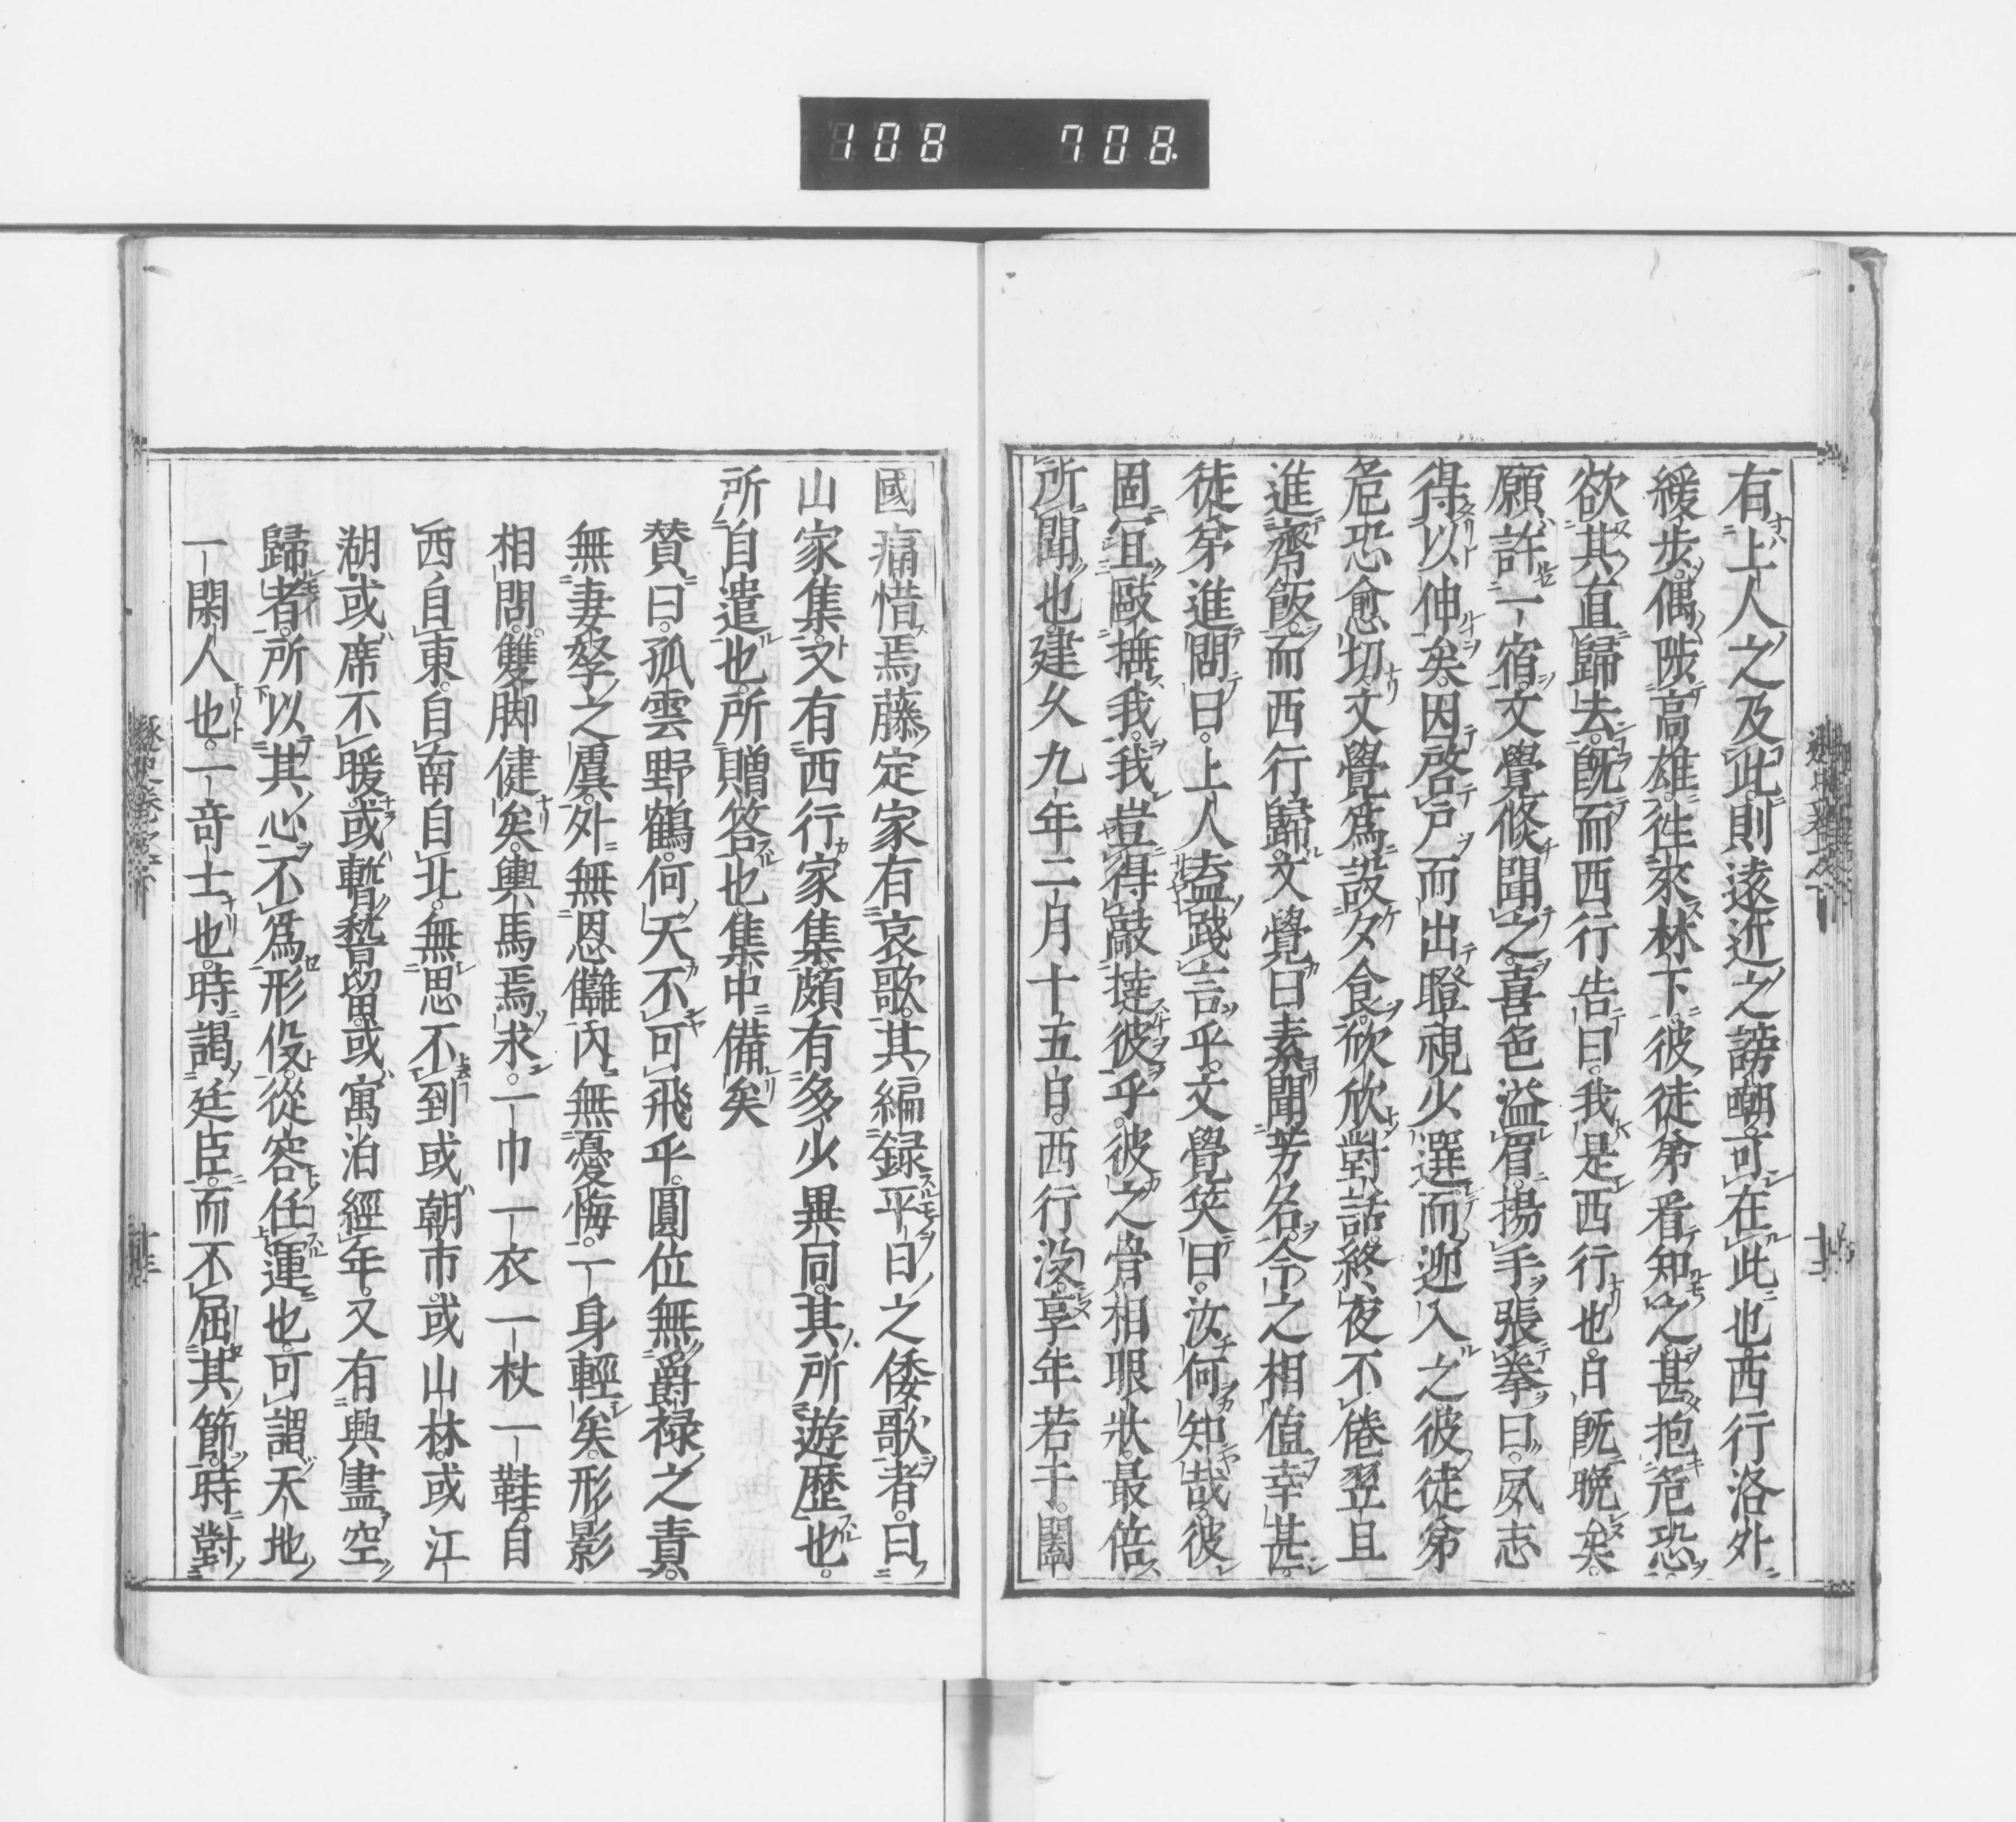 108 708.
有上人之及此則遠近之謗嘲可在此也西行洛外
緩歩。偶陟高雄。徃來林下。彼徒弟看知之甚抱危恐。
欲其直歸去。既而西行告曰。我是西行也。日既晩矣。
願許一宿。文覺倐聞之。喜色溢眉。揚手張拳曰。夙志
得以伸矣。因啓戸而出瞪視少選而迎入之彼徒弟
危恐愈切。文覺爲設夕食。欣欣對話。終夜不倦翌且
進齋飯。而西行歸。文覺曰素聞芳名。今之相値幸甚。
徒弟進問曰。上人盍踐言乎。文覺笑曰。汝何知哉。彼
固宜歐撫我。我豈得敲撻彼乎。彼之骨相眼狀。最倍
所聞也建久九年二月十五日。西行沒。享年若干。闔
國痛惜焉藤定家有哀歌。其編録平日之倭歌者。曰
山家集。又有西行家集。頗有多少異同。其所遊歴也。
所自遣也。所贈答也。集中備矣
賛曰。孤雲野鶴。何天不可飛乎。圓位無爵禄之責。
無妻孥之虞。外無恩讎内無憂悔。一身輕矣。形影
相問。雙脚健矣。輿馬焉求。一巾一衣一杖一鞋。自
西自東。自南自北。無思不到或朝市。或山林。或江
湖或席不暖。或暫暬留。或寓泊經年。又有興盡空
歸者。所以其心不爲形役。從容任運也。可謂天地
一閑人也。一竒士也。時謁廷臣。而不屈其節。時對